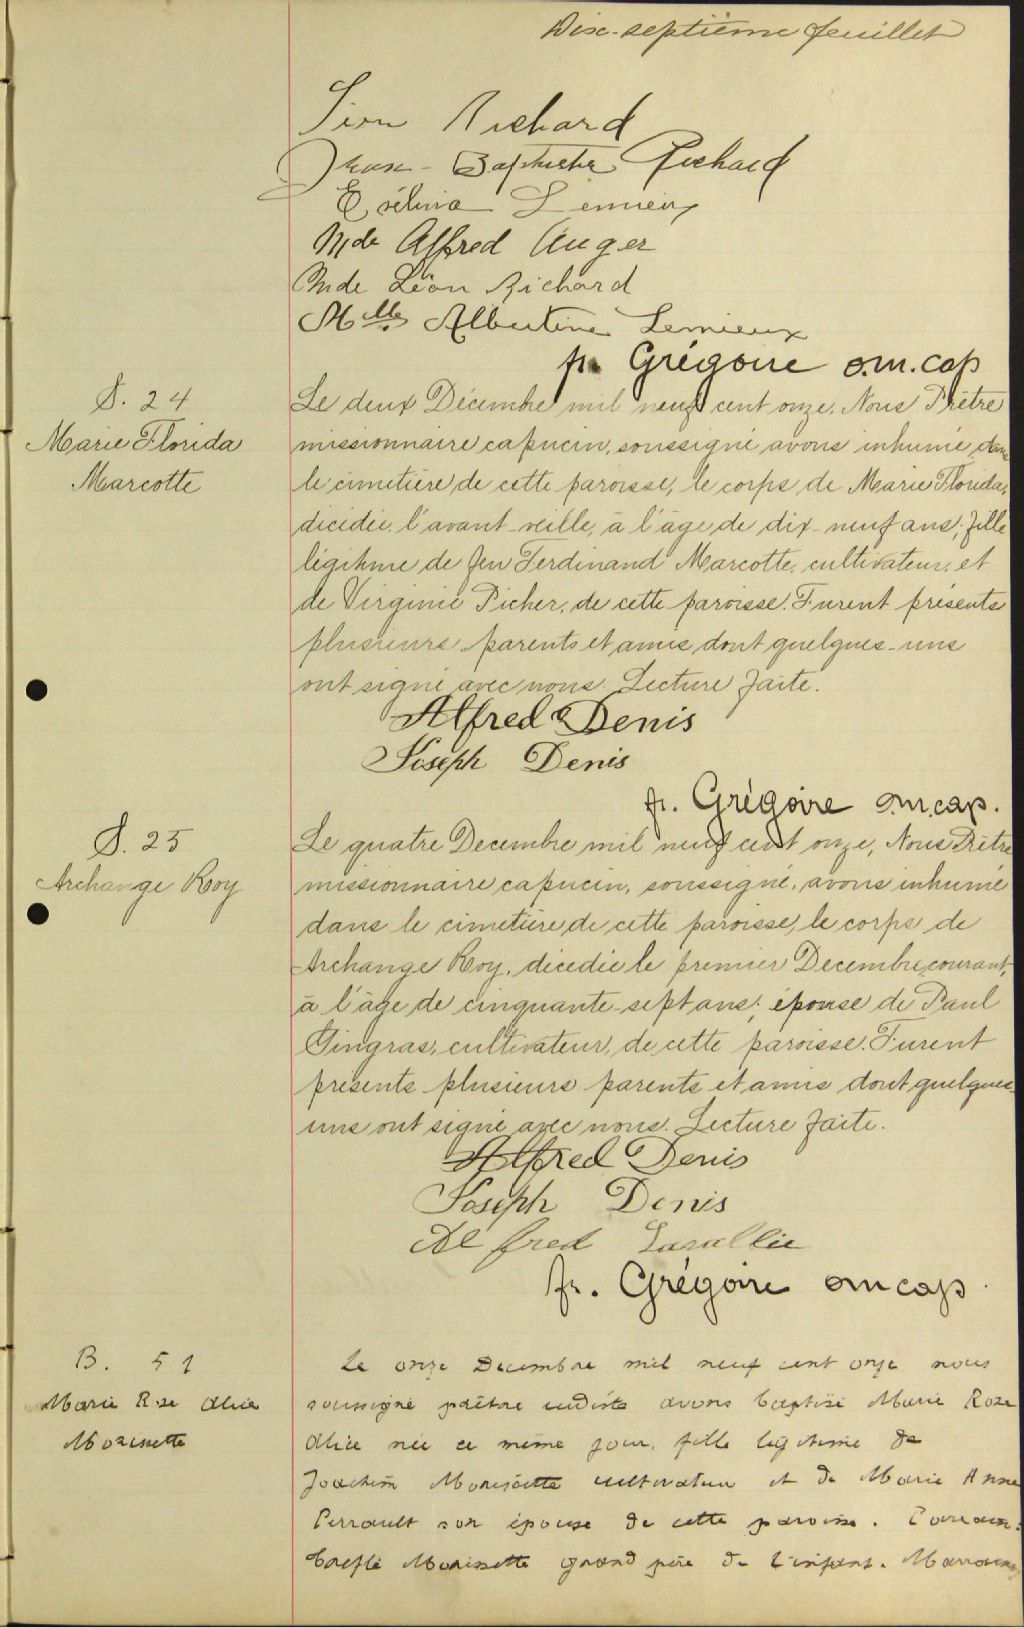 Dix-septième feuillet
Léon Richard
Jean-Baptiste Richard
Exélina Lemieux
Mde Alfred Auger
Mde Léon Richard
Mlle Albertine Lemieux
fr. Grégoire o.m.cap
S. 24
Marie Florida
Marcotte
Le deux Décembre mil neuf cent onze, Nous Prêtre
missionnaire capucin, soussigné avons inhumé dans
le cimetière de cette paroisse, le corps de Marie Florida,
décédée l'avant-veille, à l'âge de dix-neuf ans, fille
légitime de feu Ferdinand Marcotte, cultivateur, et
de Virginie Picher, de cette paroisse. Furent présents
plusieurs parents et amis dont quelques-uns
ont signé avec nous. Lecture faite.
Alfred Denis
Joseph Denis
fr. Grégoire o.m.cap.
S. 25
Archange Roy
Le quatre Decembre mil neuf cent onze, Nous Prêtre
missionnaire capucin, soussigné, avons inhumé
dans le cimetière de cette paroisse, le corps de
Archange Roy, décédée le premier Decembre courant,
à l'âge de cinquante-sept ans, épouse de Paul
Gingras, cultivateur, de cette paroisse. Furent
présents plusieurs parents et amis dont quelques-
uns ont signé avec nous. Lecture faite.
Alfred Denis
Joseph Denis
Alfred Lavallée
fr. Grégoire omcap.
B. 51
Marie Rose Alice
Morissette
Le onze Decembre mil neuf cent onze nous
soussigné prêtre eudiste avons baptisé Marie Rose
Alice née ce même jour, fille légitime de
Joachim Morissette cultivateur et de Marie Anne
Perrault son épouse de cette paroisse. Parrain:
Morissette grand père de l'enfant. Marraine